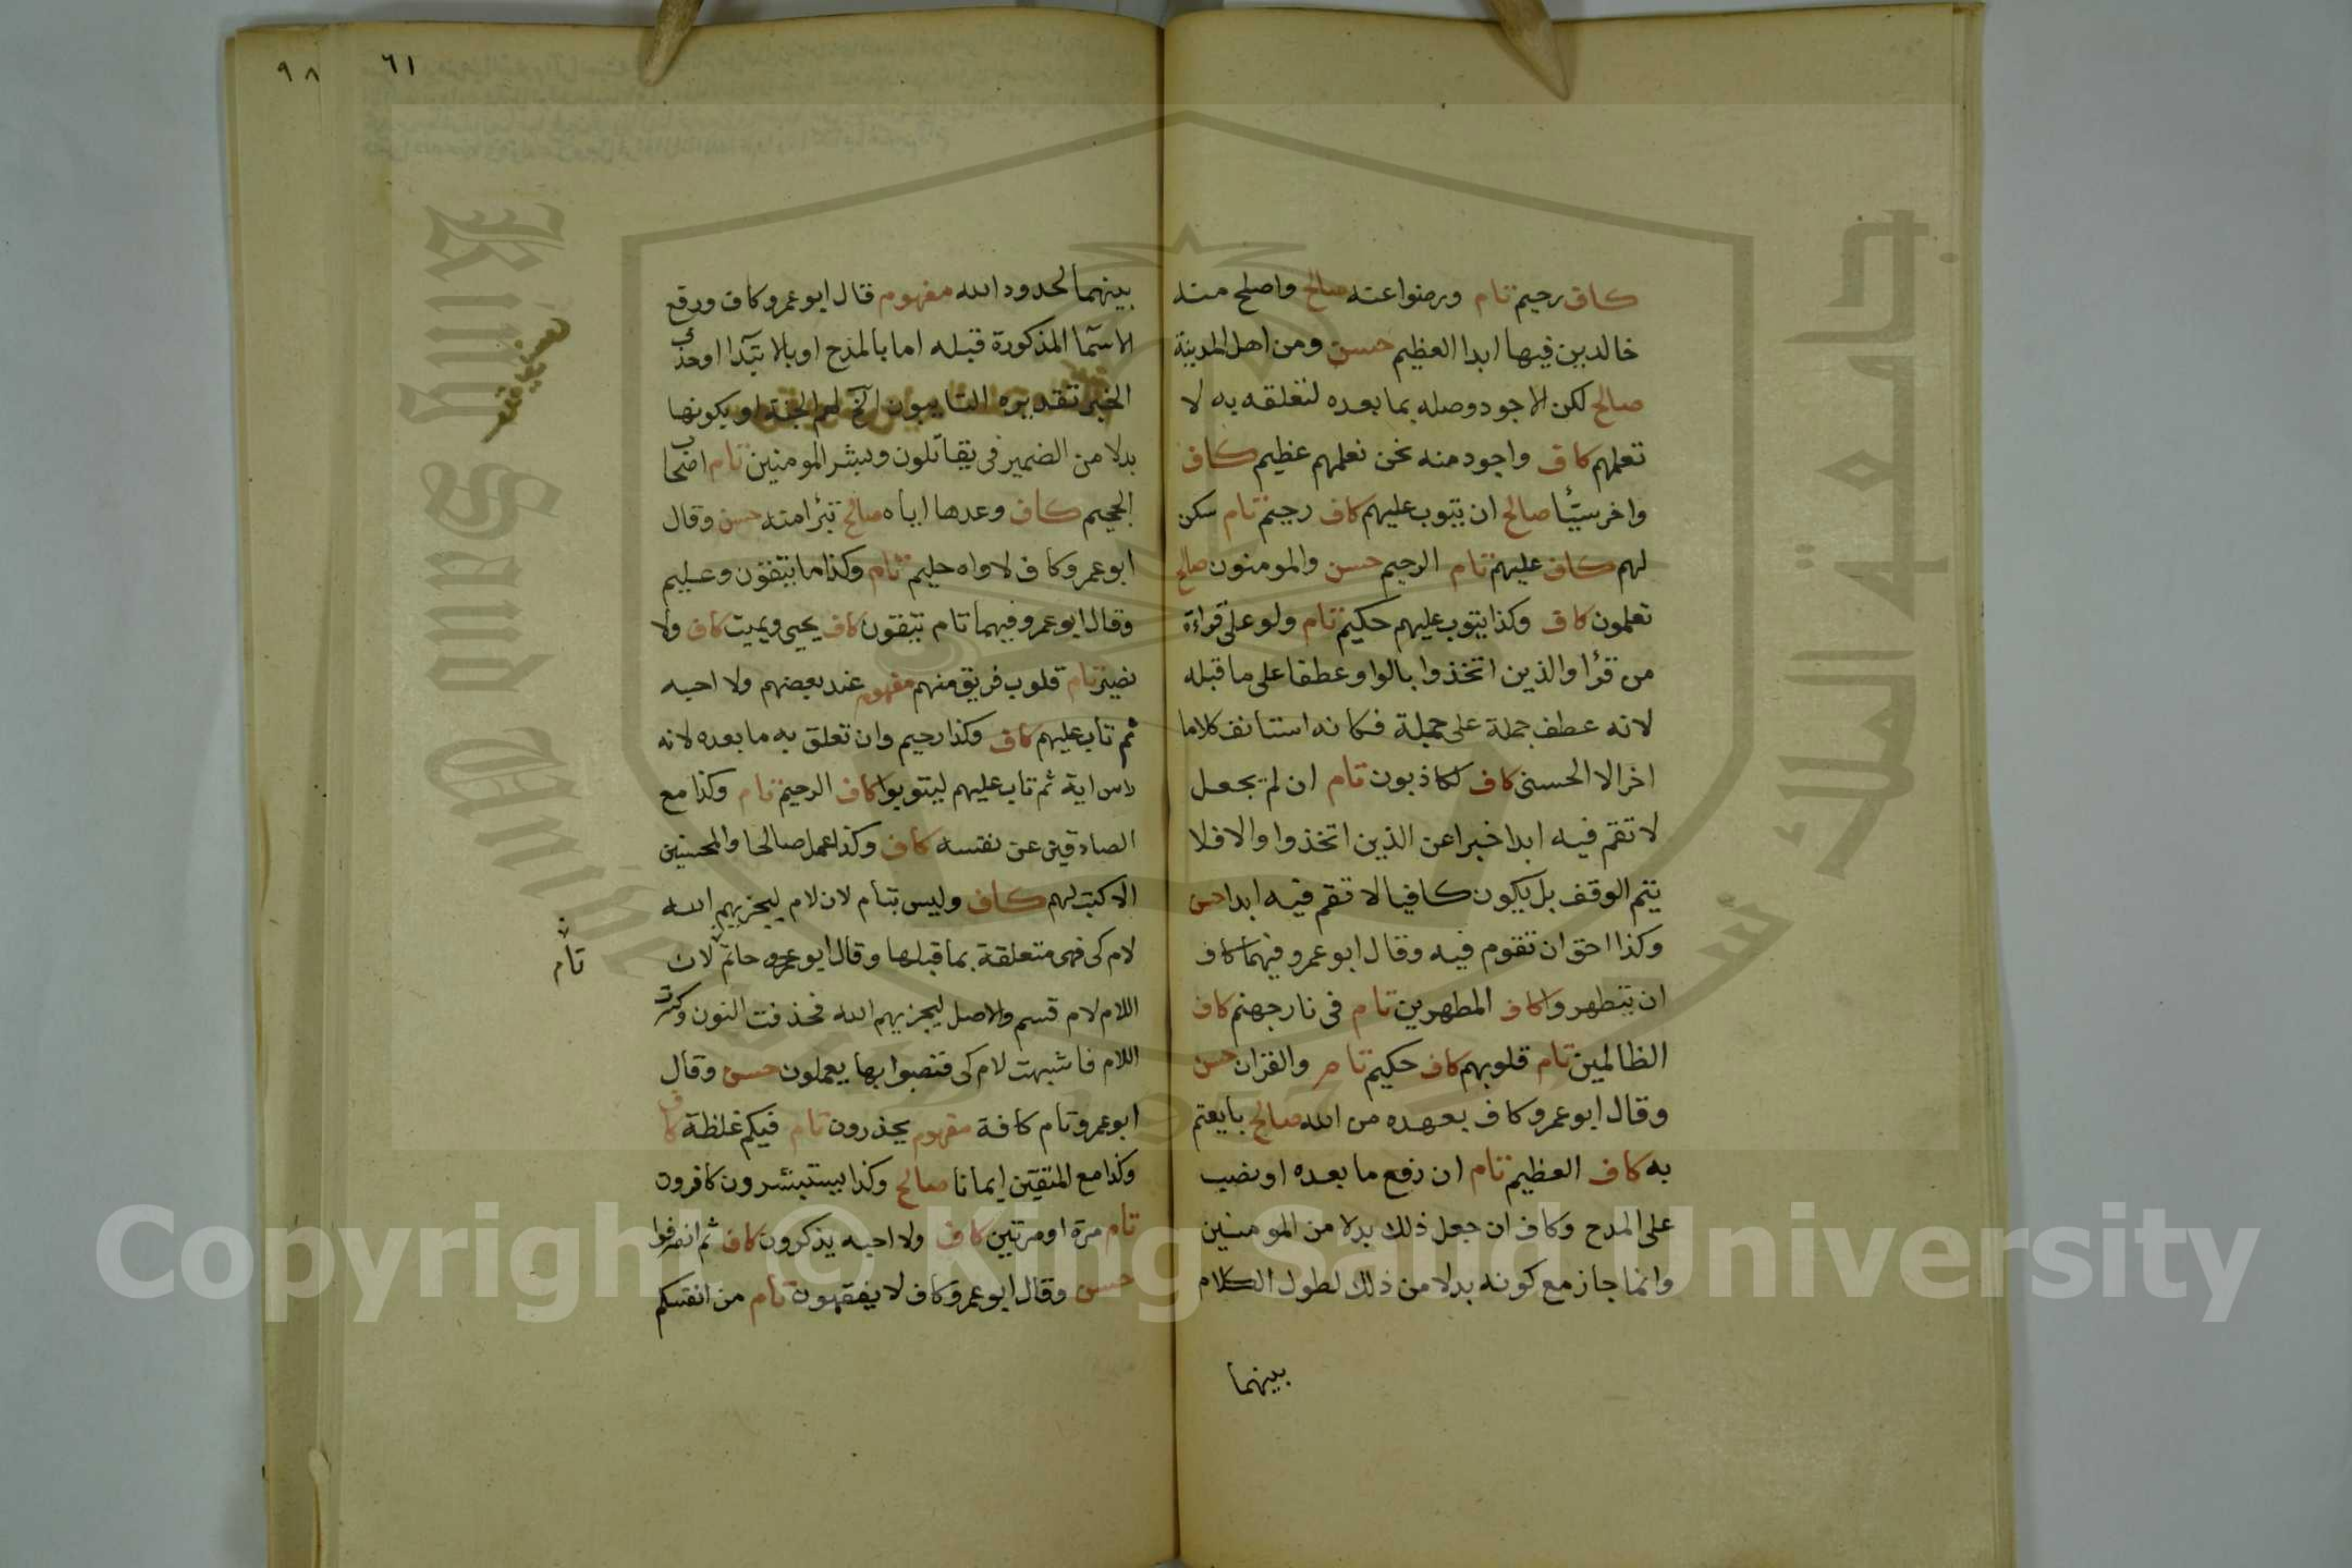 كاف رحيم تام ورضوا عنه صالح واصلح منه
خالدين فيها ابدا العظيم حسن ومن اهل المدينة
صالح لكن الاجود وصله بما بعده لتعلقه به لا
تعلمهم كاف واجود منه نحن نعلمهم عظيم كاف
واخر سيّئا صالح ان يتوب عليهم كاف رحيم تام سكن
لهم كاف عليهم تام الرحيم حسن والمومنون صالح
تعلمون كاف وكذا يتوب عليهم حكيم تام ولو على قراءة
من قرأ والذين اتخذوا بالواو عطفا على ما قبله
لانه عطف جملة على جملة فكانه استانف كلاما
اخر الا الحسنى كاف لكاذبون تام ان لم يجعل
لا تقم فيه ابدا خبرا عن الذين اتخذوا والا فلا
يتم الوقف بل يكون كافيا لا تقم فيه ابدا حسن
وكذا احق ان تقوم فيه وقال ابو عمرو فيهما كاف
ان يتطهروا كاف المطهرين تام في نار جهنم كاف
الظالمين تام قلوبهم كاف حكيم تام والقران حسن
وقال ابو عمرو كاف بعهده من الله صالح بايعتم
به كاف العظيم تام ان رفع ما بعده او نصب
على المدح وكاف ان جعل ذلك بدلا من المومنين
وانما جاز مع كونه بدلا من ذلك لطول الكلام
بينهما
٦١
٩٨
بينهما لحدود الله مفهوم قال ابو عمرو كاف ورفع
الاسما المذكورة قبله اما بالمدح او بالابتدا او حذف
الخبر تقديره التايبون الخ لهم الجنة او يكونها
بدلا من الضمير في يقاتلون وبشر المومنين تام اصحاب
الجحيم كاف وعدها اياه صالح تبرأ منه حسن وقال
ابو عمرو كاف لاواه حليم تام وكذا ما يتقون وعليم
وقال ابو عمرو فيهما تام يتقون كاف يحيي ويميت كاف ولا
نصير تام قلوب فريق منهم مفهوم عند بعضهم ولا احبه
ثم تاب عليهم كاف وكذا رحيم وان تعلق به ما بعده لانه
راس اية ثم تاب عليهم ليتوبوا كاف الرحيم تام وكذا مع
الصادقين عن نفسه كاف وكذا عمل صالحا والمحسنين
الا كتب لهم كاف وليس بتام لان لام ليجزيهم الله
لام كي فهي متعلقة بما قبلها وقال ابو حاتم لان
تام
اللام لام قسم والاصل ليجزيهم الله فحذفت النون وكسرت
اللام فاشبهت لام كي فنصبوا بها يعملون حسن وقال
ابو عمرو تام كافة مفهوم يحذرون تام فيكم غلظة كاف
وكذا مع المتقين ايمانا صالح وكذا يستبشرون كافرون
تام مرة او مرتين كاف ولا احبه يذكرون كاف ثم انصرفوا
حسن وقال ابو عمرو كاف لا يفقهون تام من انفسكم
جامعة الملك سعود
King Saud University
Copyright © King Saud University